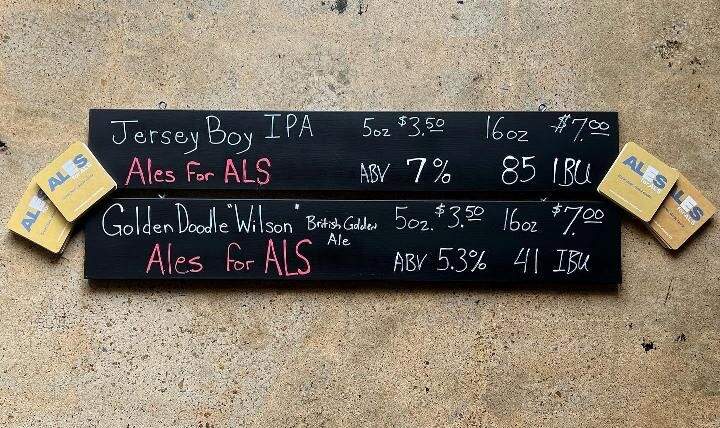 Jersey Boy IPA 5oz $3.50 16oz $7.00
Ales For ALS ABV 7% 85 IBU
Golden Doodle "Wilson" British Golden Ale 5oz. $3.50 16oz $7.00
Ales for ALS ABV 5.3% 41 IBU
ALES
ALES
ALES
ALES